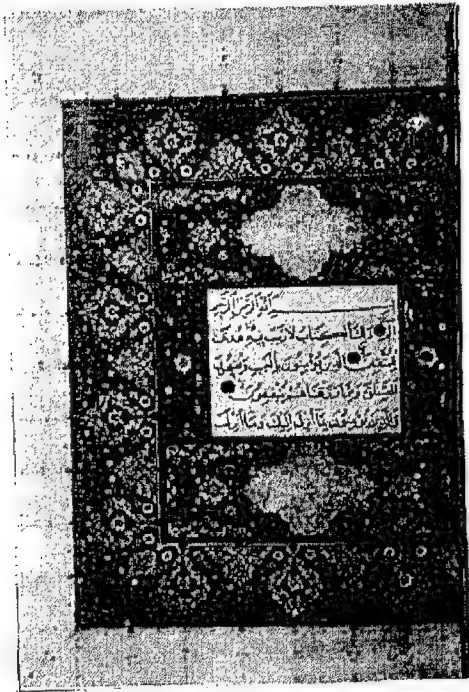 بِسْمِ اللهِ الرَّحْمٰنِ الرَّحِيمِ
الم ذٰلِكَ الْكِتَابُ لَا رَيْبَ فِيهِ هُدًى
لِلْمُتَّقِينَ الَّذِينَ يُؤْمِنُونَ بِالْغَيْبِ وَيُقِيمُونَ
الصَّلٰوةَ وَمِمَّا رَزَقْنَاهُمْ يُنْفِقُونَ
وَالَّذِينَ يُؤْمِنُونَ بِمَا أُنْزِلَ إِلَيْكَ وَمَا أُنْزِلَ